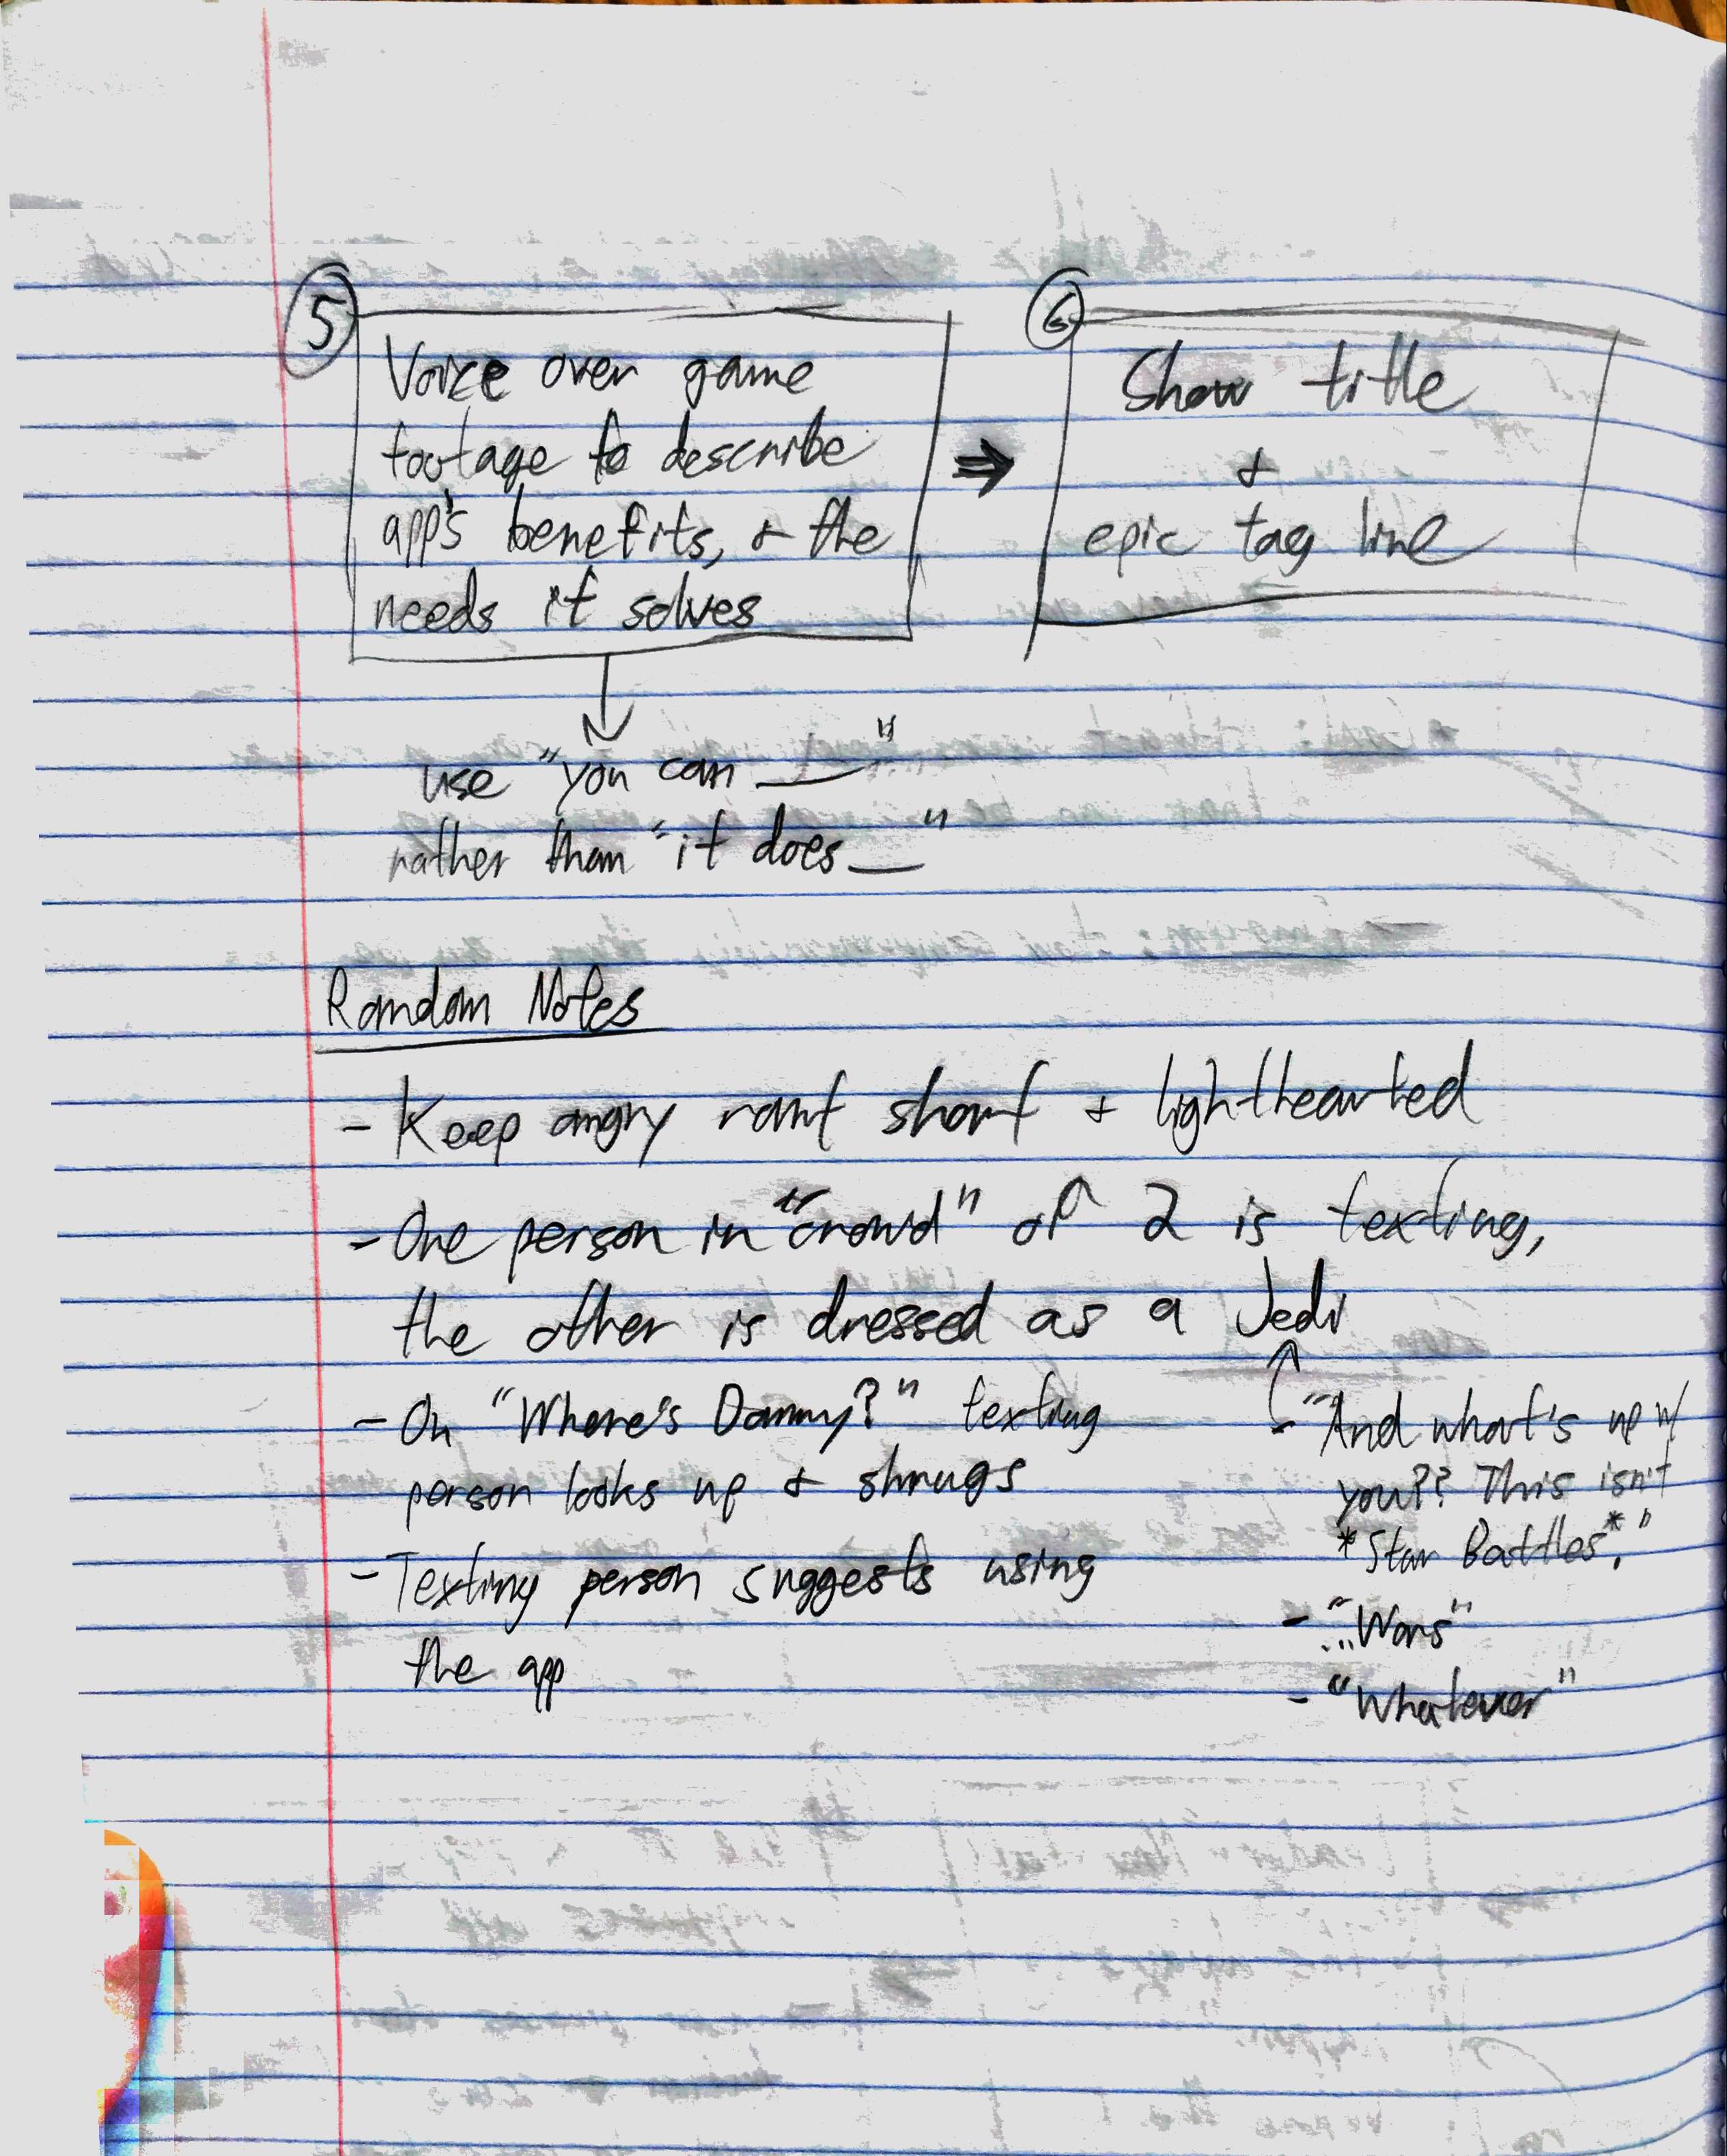 5
Voice over game
footage to describe
app's benefits, & the
needs it solves
⇒
6
Show title
&
epic tag line
↓
use "you can ___"
rather than "it does ___"
Random Notes
- Keep angry rant short & lighthearted
- One person in "crowd" of 2 is texting,
the other is dressed as a Jedi
- On "Where's Danny?" texting
person looks up & shrugs
- Texting person suggests using
the app
- "And what's up w/
you?? This isn't
*Star Battles*."
- "...Wars"
- "Whatever"